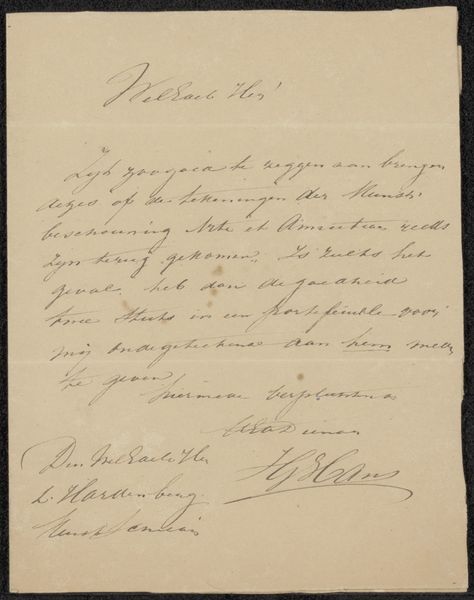 WelEdele Heer!
Zijt zoogoed te zeggen aan brenger
dezes of de tekeningen der Kunst-
beschouwing Arte et Amicitiae reeds
zijn terug gekomen. Is zulks het
geval, heb dan de goedheid
twee stuks in een portefeuille voor
mij ondergetekende aan hem mede
te geven
hiermede verplichtend
UEd Dienaar
HJ Hans
Den WelEdele Heer
L. Hardenberg